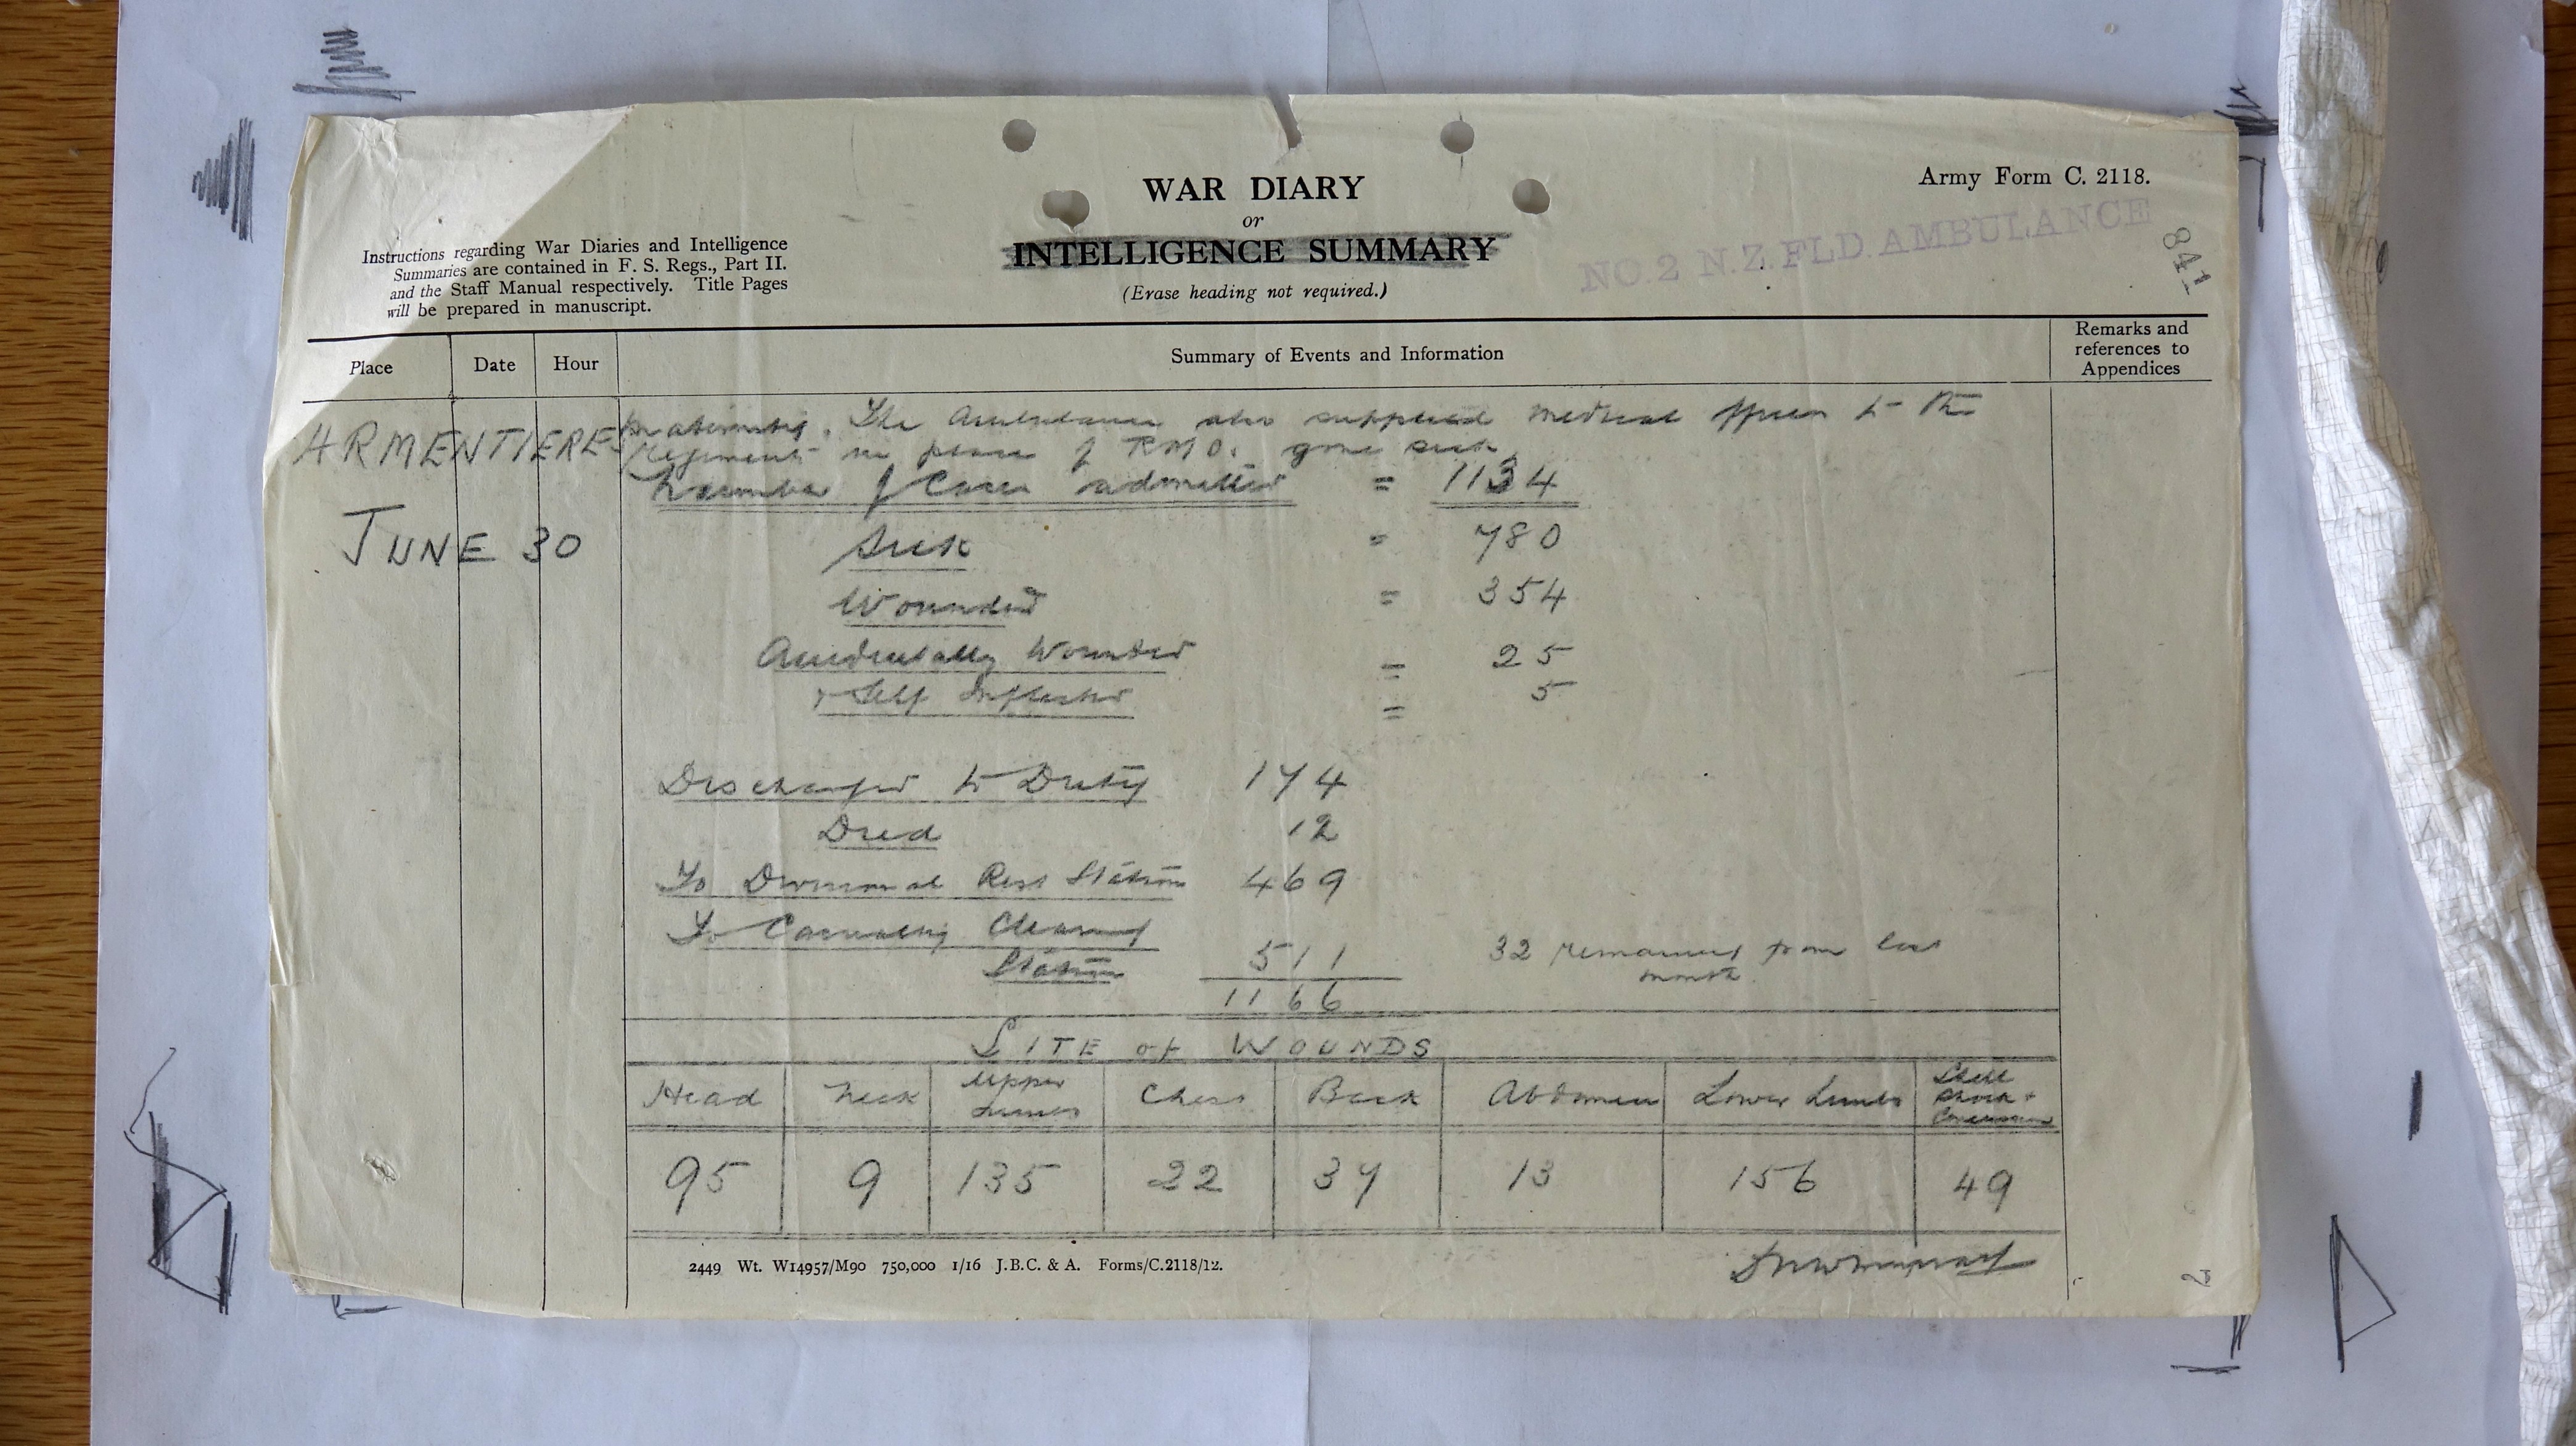 WAR DIARY
or
INTELLIGENCE SUMMARY
(Erase heading not required.)
Army Form C. 2118.
NO. 2 N.Z. FLD. AMBULANCE
841
Instructions regarding War Diaries and Intelligence
Summaries are contained in F. S. Regs., Part II.
and the Staff Manual respectively. Title Pages
will be prepared in manuscript.
Place Date Hour Summary of Events and Information Remarks and references to Appendices
ARMENTIERES
The Ambulance also supplied medical officers to the
Regiments in place of RMO. gone sick
JUNE 30
Number of Cases admitted = 1134
Sick = 780
Wounded = 354
Accidentally Wounded = 25
Self Inflicted = 5
Discharged to Duty 174
Died 12
To Divisional Rest Station 469
To Casualty Clearing
Station 511
32 remaining from last
month.
1166
SITE of WOUNDS
Head Neck Upper Limbs Chest Back Abdomen Lower Limbs Shell Shock + Concussion
95 9 135 22 37 13 156 49
2449 Wt. W14957/M90 750,000 1/16 J.B.C. & A. Forms/C.2118/12.
2